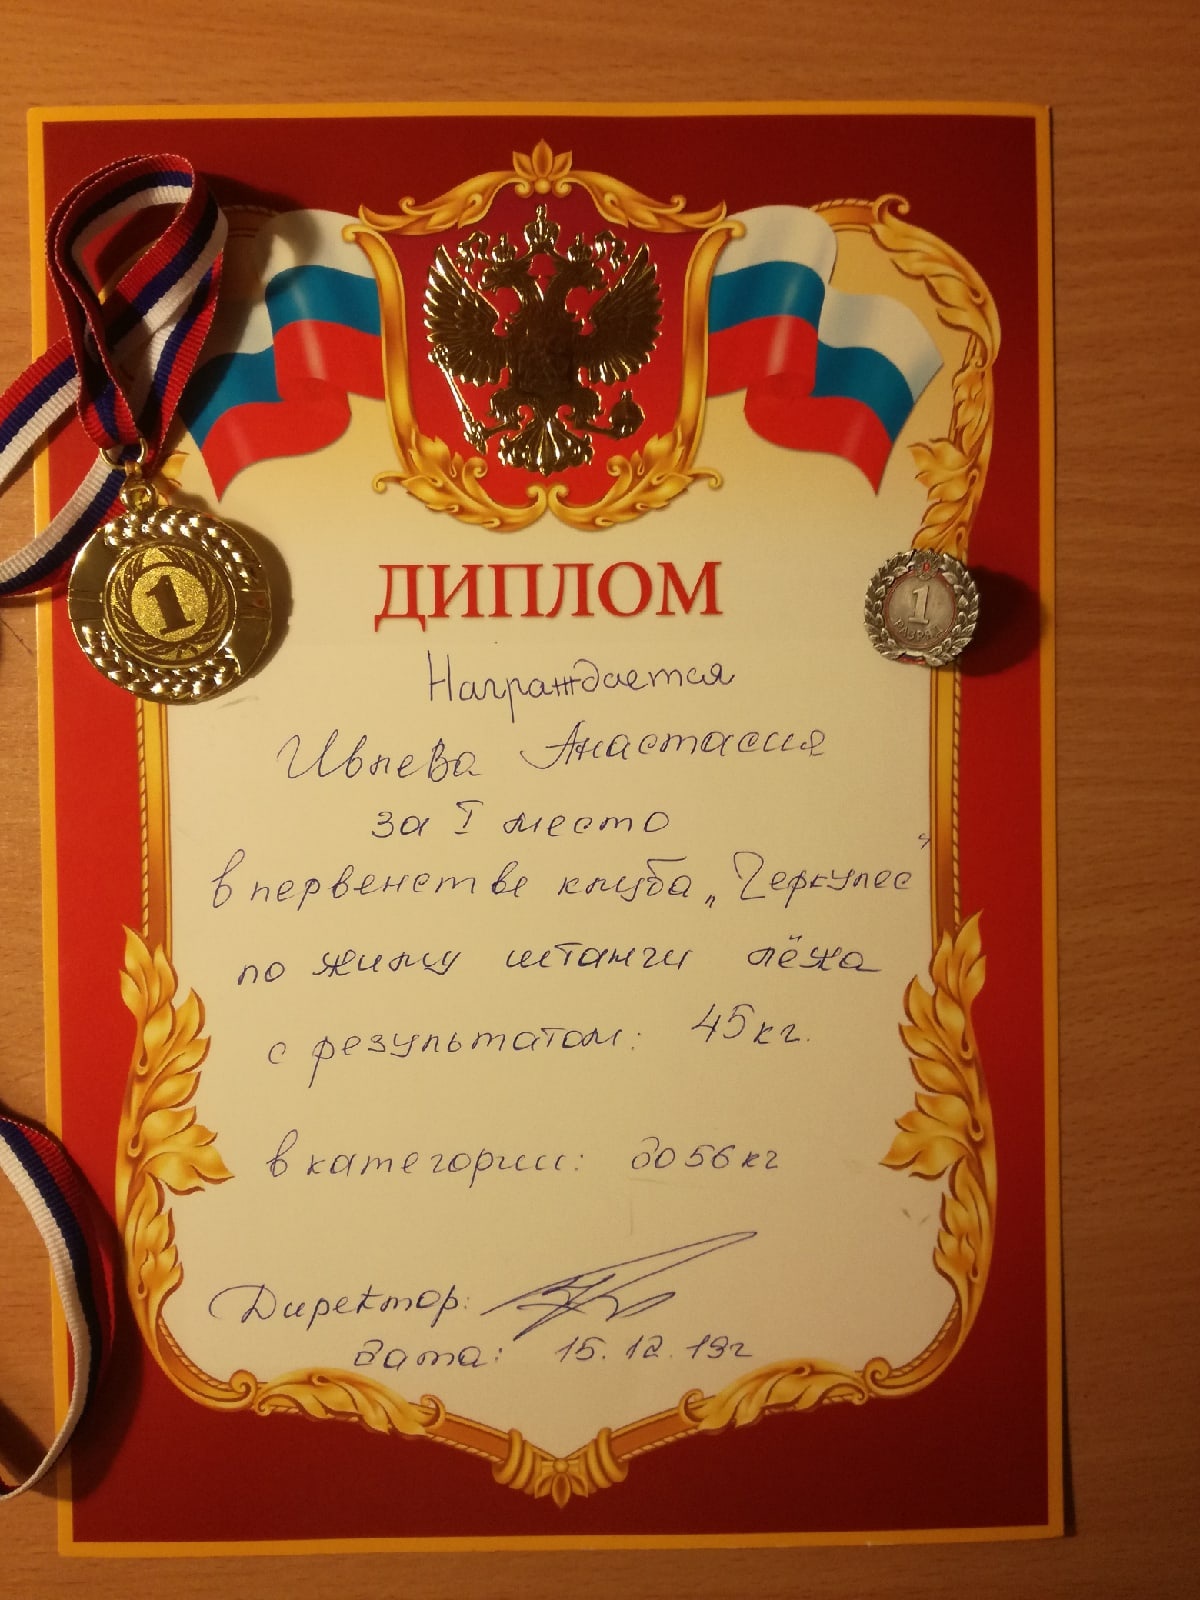 1
ДИПЛОМ
1
РАЗРЯД
Награждается
Ивлева Анастасия
за I место
в первенстве клуба „Геркулес"
по жиму штанги лёжа
с результатом: 45кг.
в категории: до 56кг
Директор:
дата: 15.12.19г